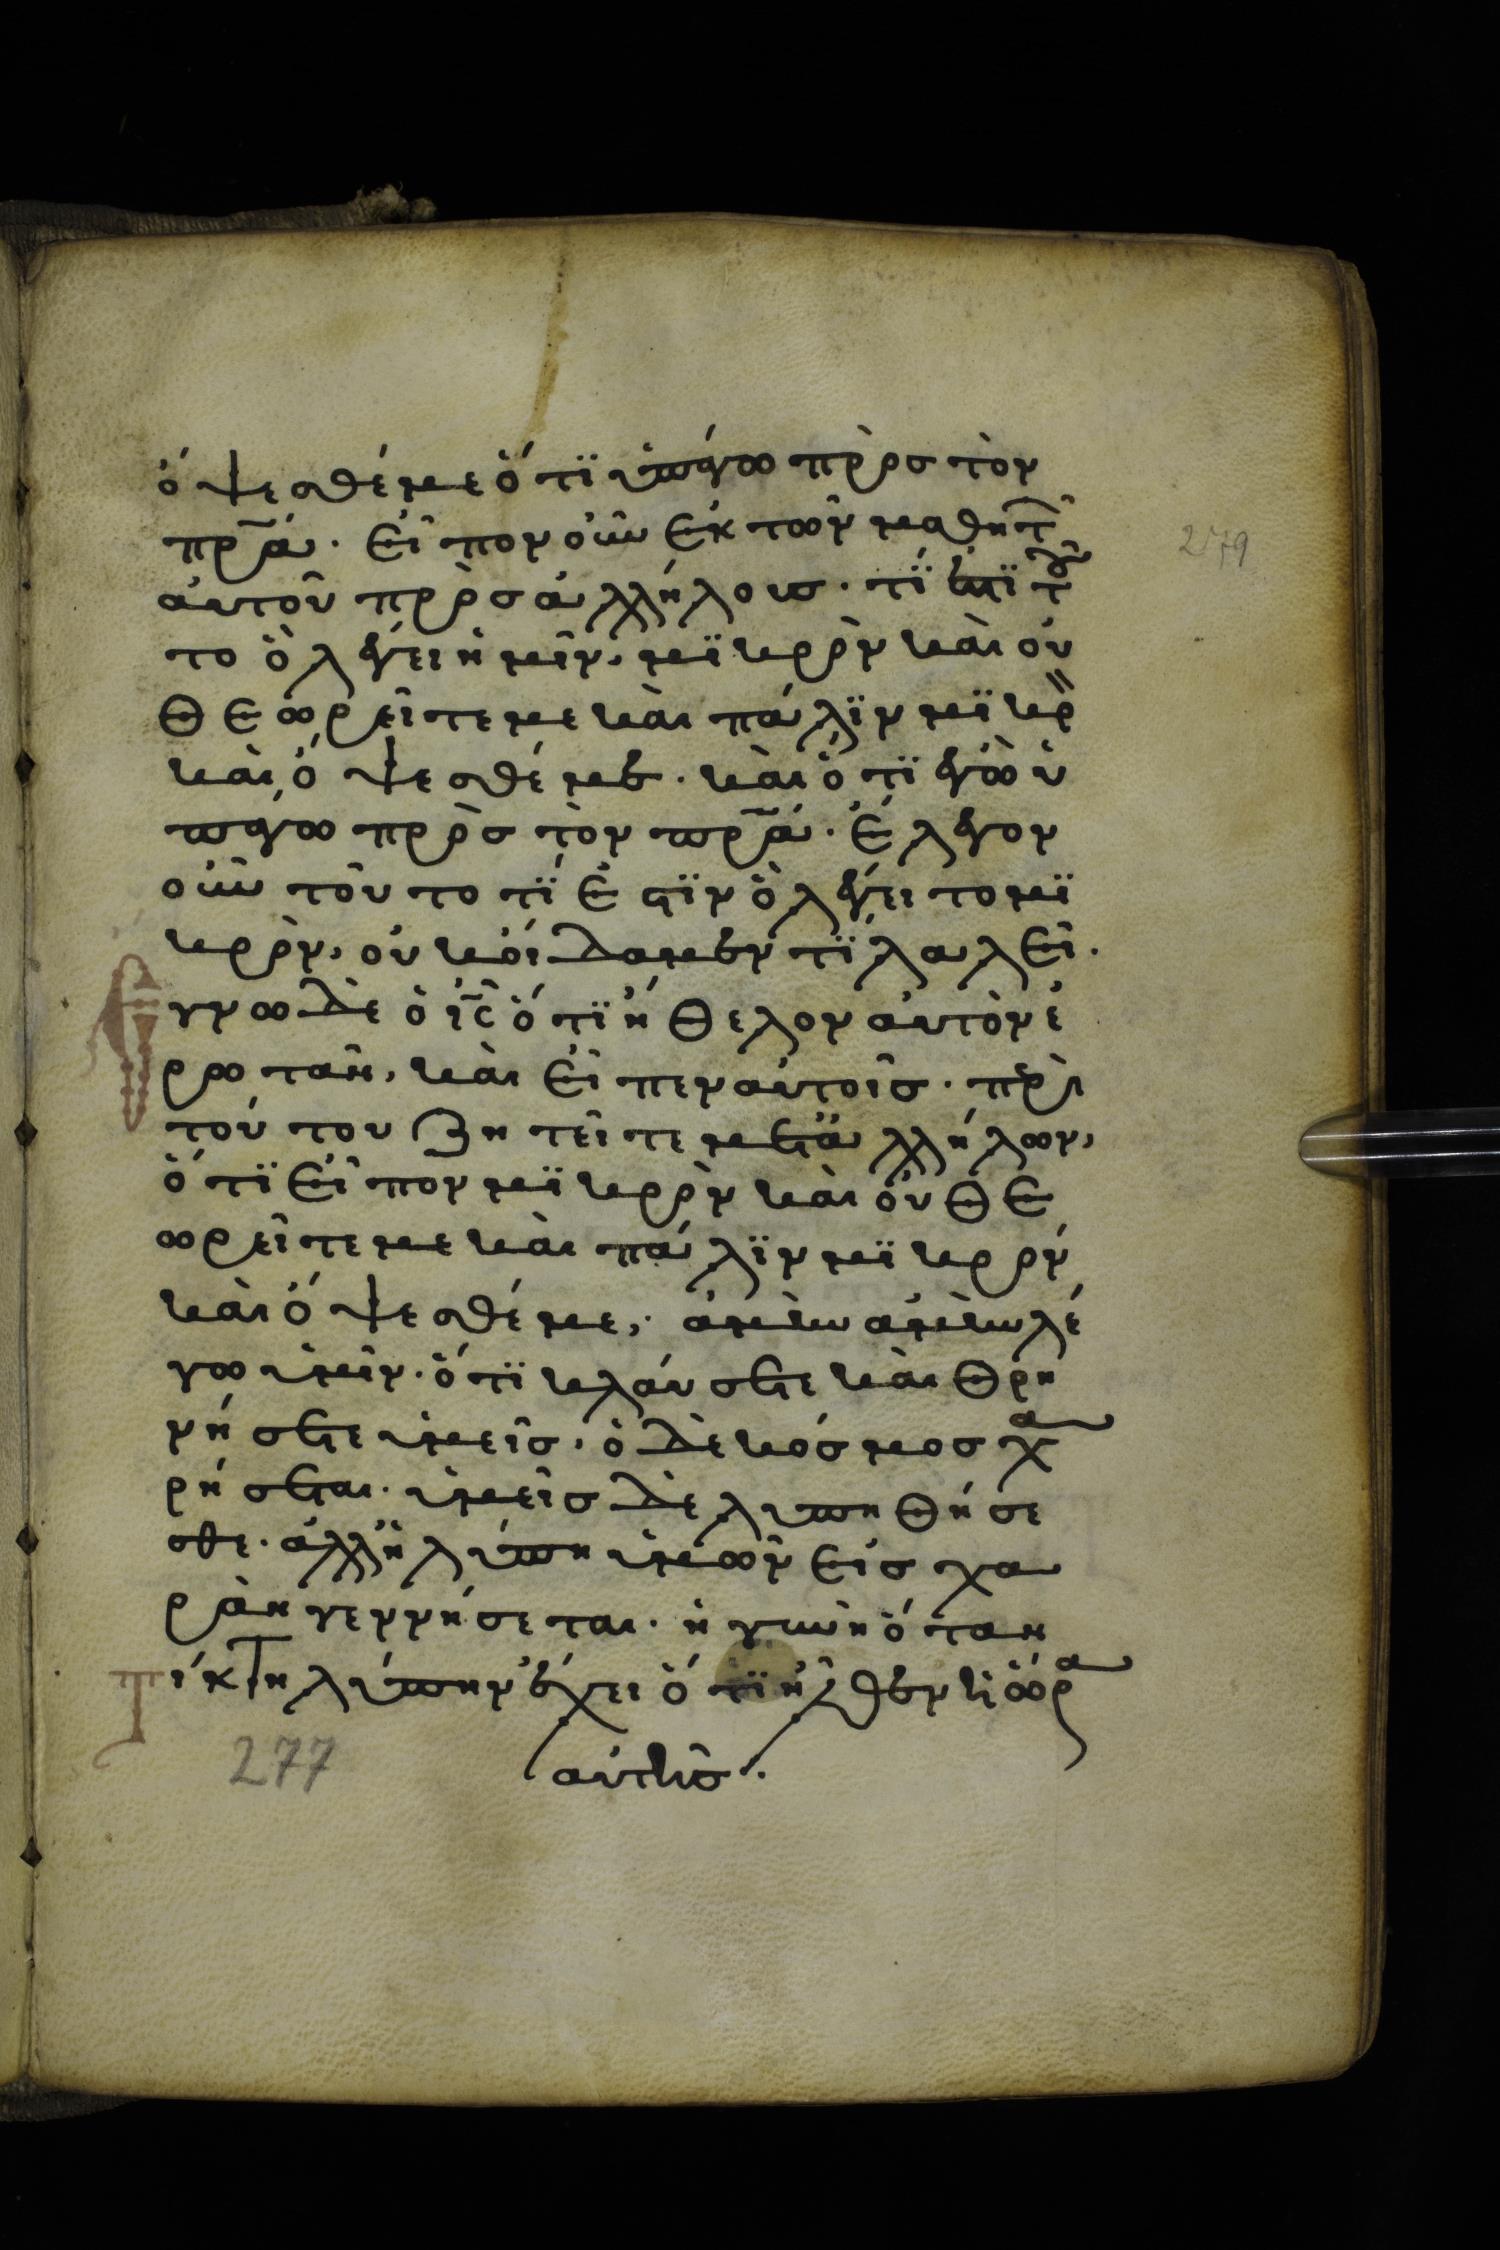 ὄψεσθέ με ὅτϊ ὑπάγω πρὸς τὸν
πρ̅α̅. Εἶπον οὖν ἐκ τῶν μαθητῶ
αὐτοῦ πρὸς ἀλλήλους· τΐ ἐστϊ τοῦ
το ὃ λέγει ἡμῖν, μϊκρὸν καὶ οὐ
θεωρεῖτε με καὶ πάλϊν μϊκρ
καὶ ὄψεσθέ με· καὶ ὅτϊ ἐγὼ ὑ
πάγω πρὸς τὸν πρ̅α̅· ἔλεγον
οὖν τοῦτο τΐ ἐστϊν ὃ λέγει το μϊ
κρὸν, οὐκ οἴδαμεν τΐ λαλεῖ.
Ἔγνω δὲ ὁ ι̅ς̅ ὅτϊ ἤθελον αὐτὸν ἐ
ρωτᾶν, καὶ εἶπεν αὐτοῖς· περὶ
τούτου ζητεῖτε μετὰ ἀλλήλων,
ὅτϊ εἶπον μϊκρὸν καὶ οὐ θε
ωρεῖτε με καὶ πάλϊν μϊκρὸν
καὶ ὄψεσθέ με,· ἀμὴν ἀμὴν λέ
γω ὑμῖν· ὅτϊ κλαύσετε καὶ θρη
νήσετε ὑμεῖς, ὁ δὲ κόσμος χα
ρήσεται· ὑμεῖς δὲ λυπηθήσε
σθε· ἀλλ' ἡ λύπη ὑμῶν εἰς χα
ρὰν γεννήσεται· ἡ γυνὴ ὅταν
Τίκτη λύπην ἔχει ὅτϊ ἦλθεν ἡ ὥρα
αὐτῆς·.
277
279